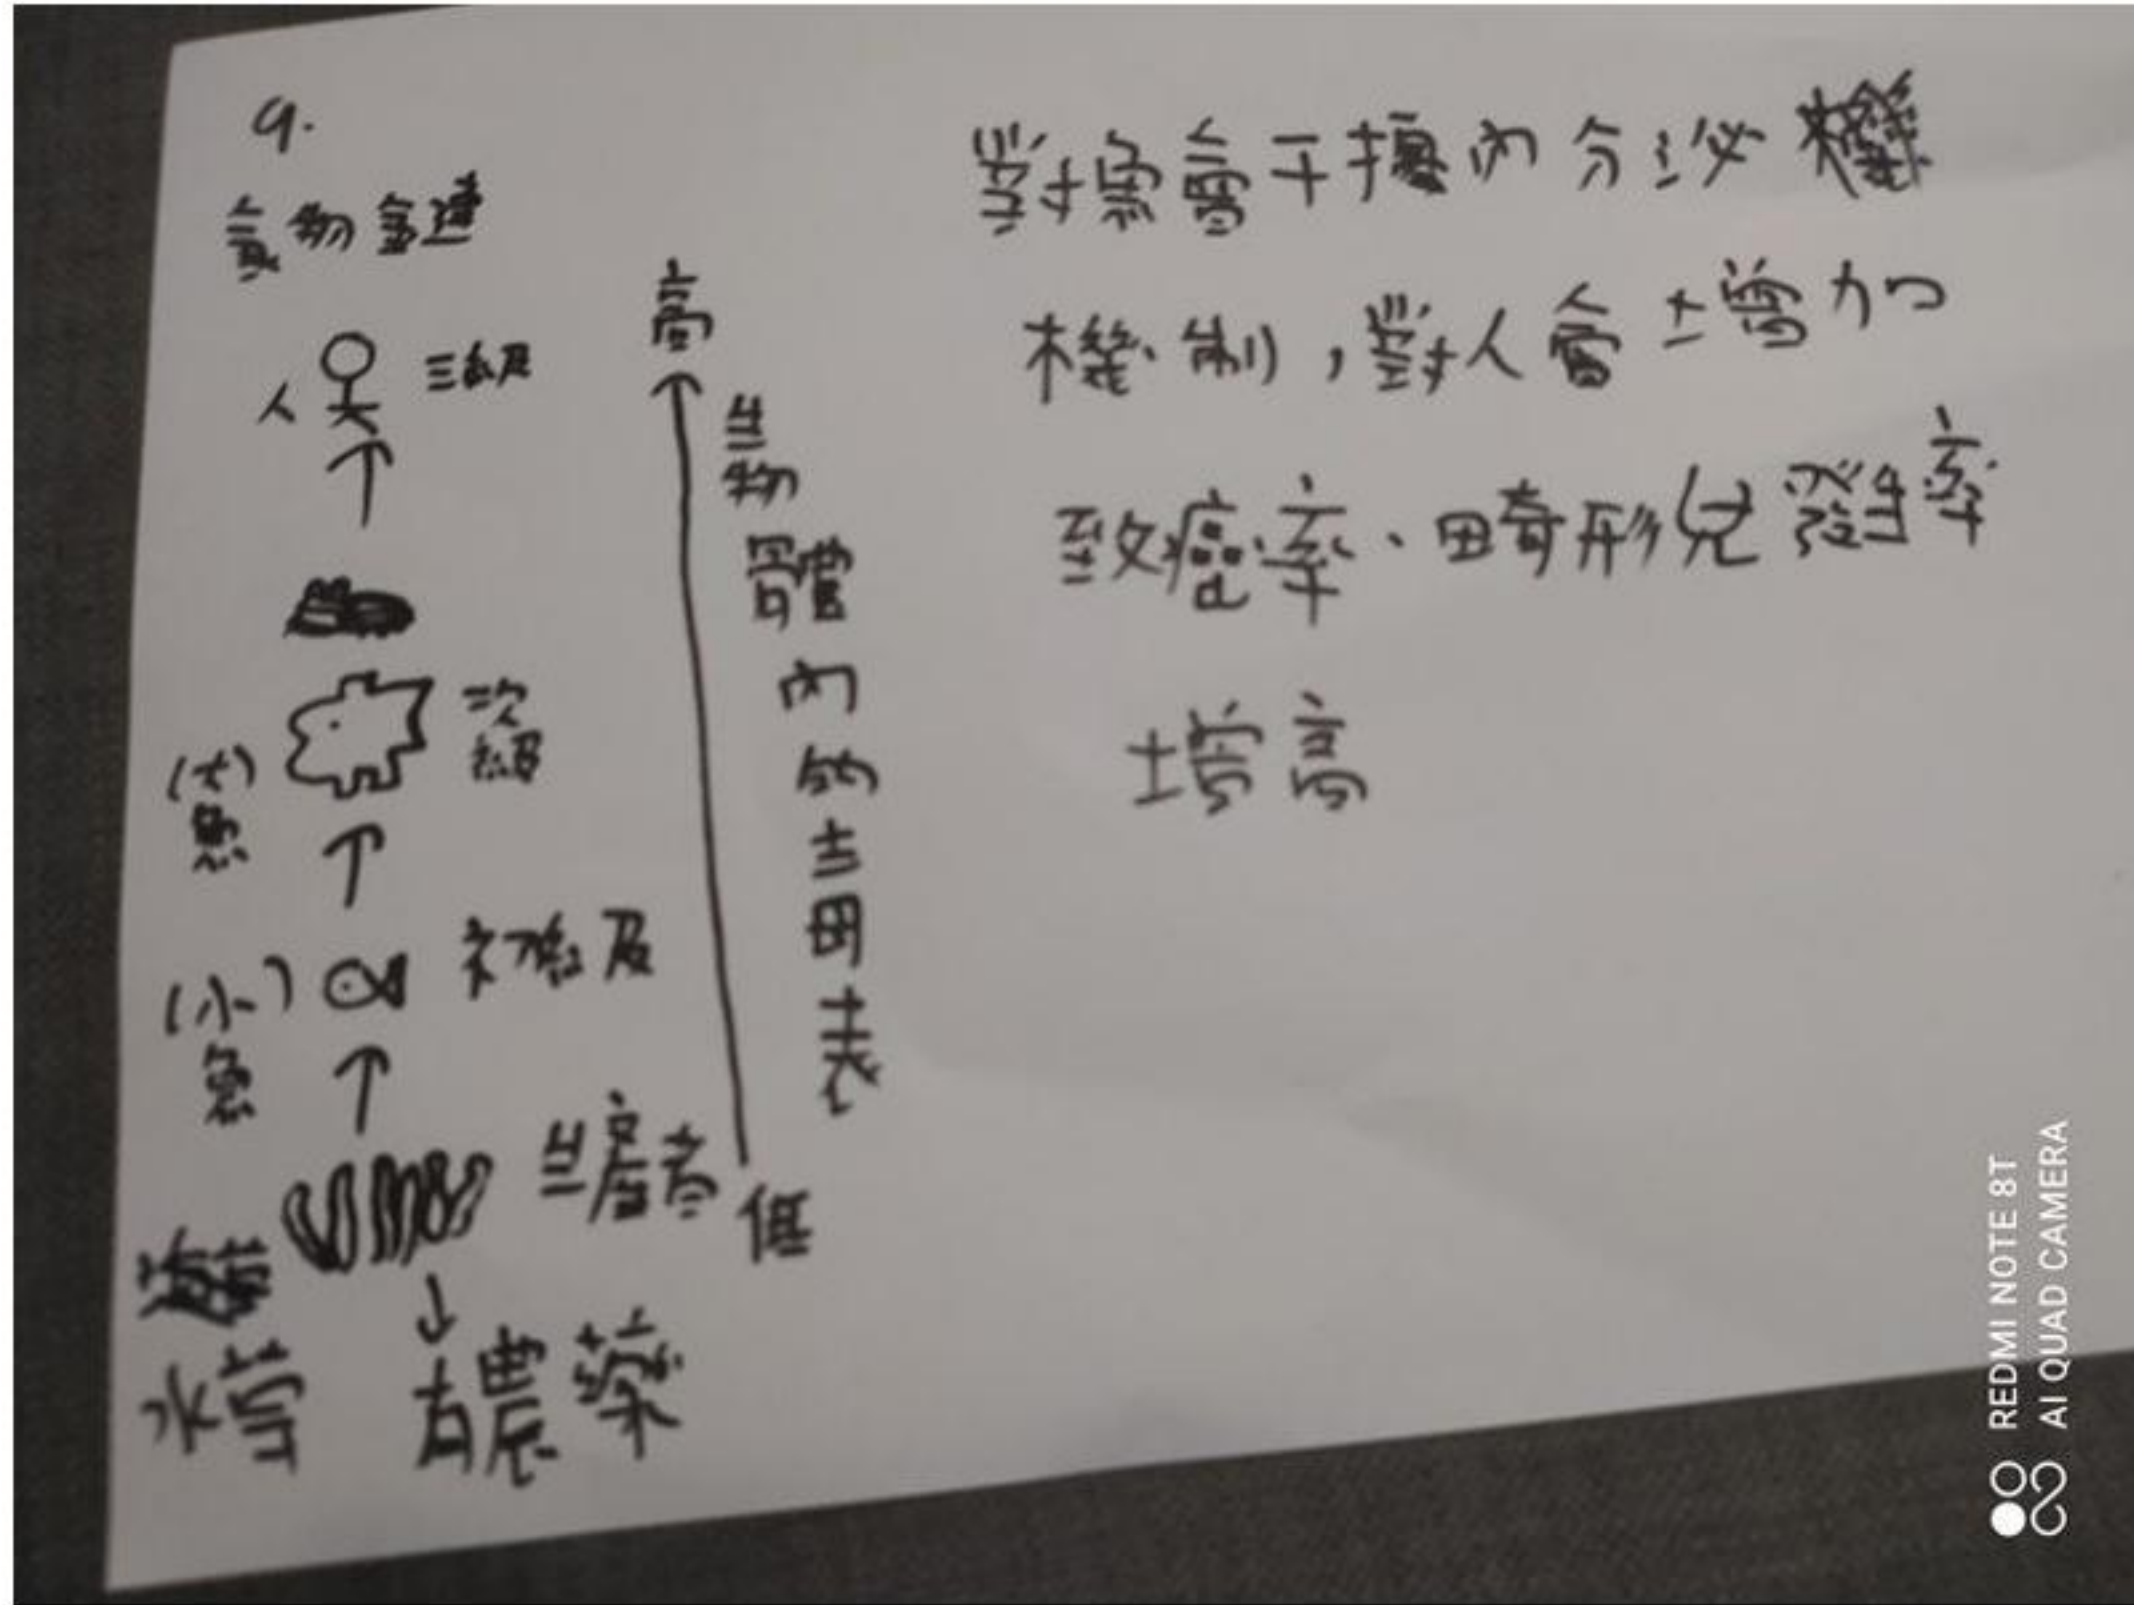 9.
食物鏈
人 三級
(大)魚 次級
(小)魚 初級
生產者
水草 農藥
高
生物體內的毒表
低
對魚會干擾內分泌
機制，對人會增加
致癌率、畸形兒發生率
增高
REDMI NOTE 8T
AI QUAD CAMERA